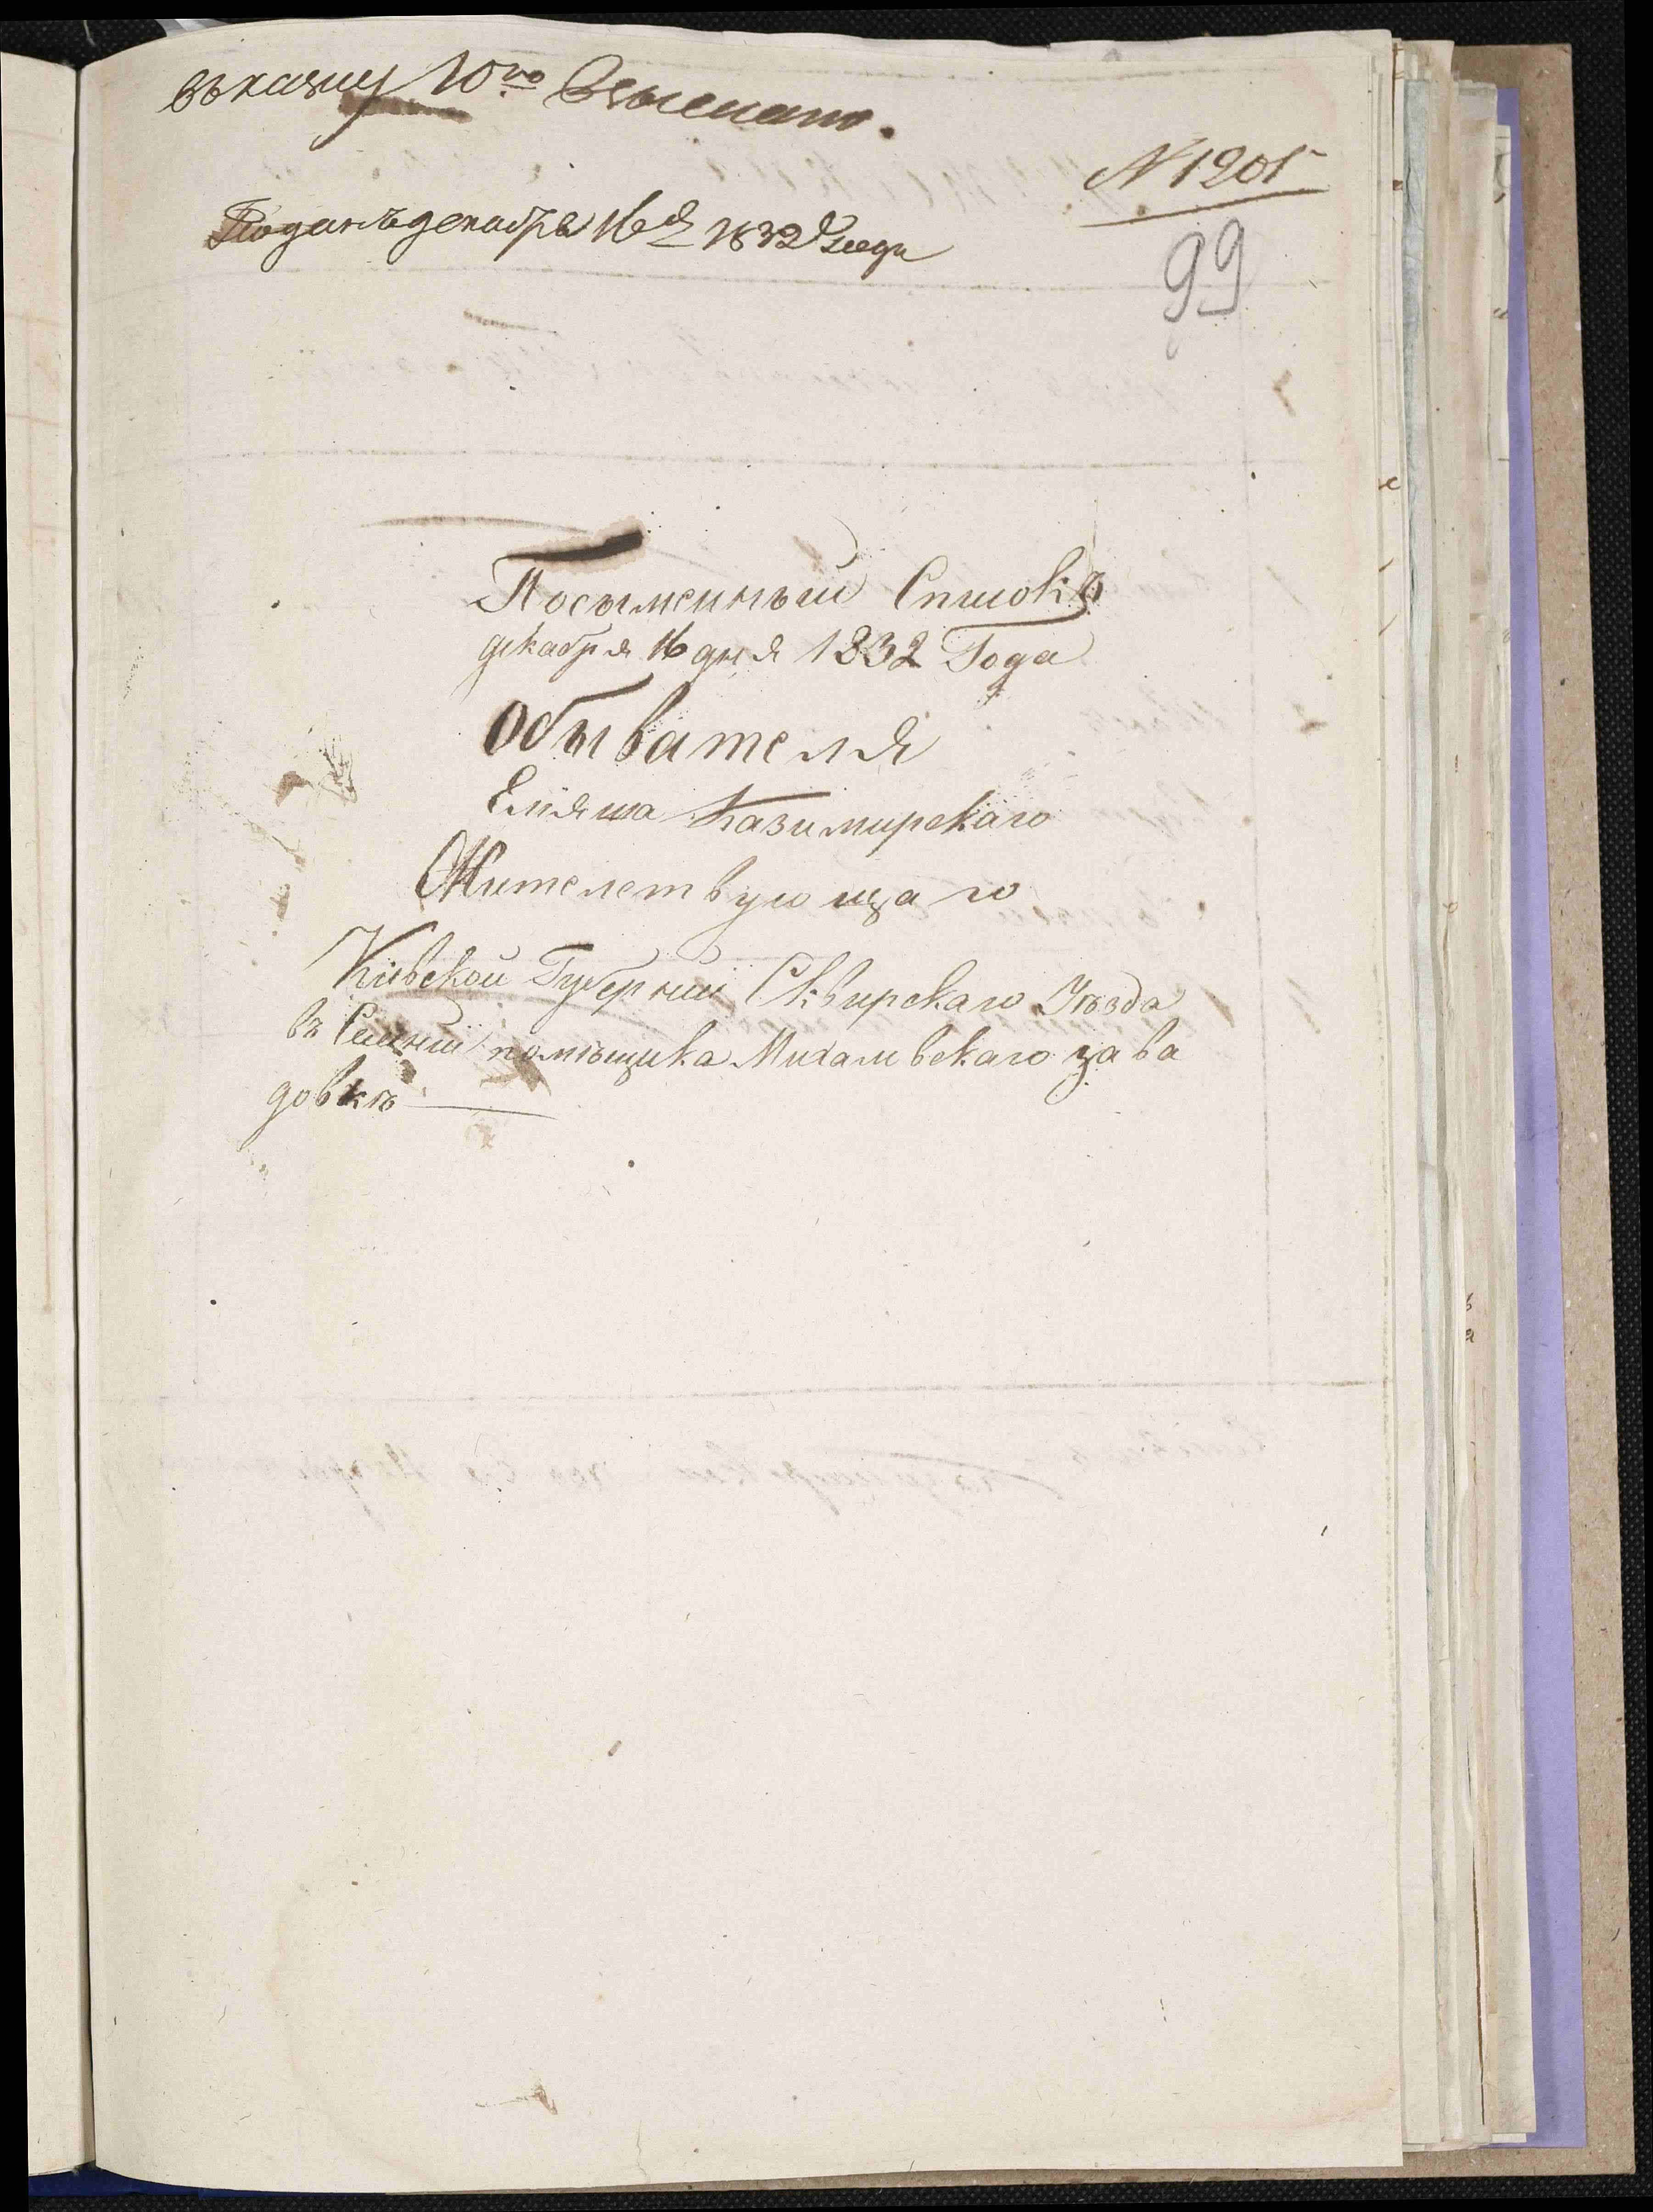 въ казну 10го
N 1201
Поданъ декабря 16 д 1832 года
99
Посыменный Списокъ
декабря 16 дня 1832 Года
Обывателя
Еліяша Казимирскаго
Жителствующаго
Кіевской Губерніи Сквирскаго Уѣзда
въ Селеніи помѣщика Михалевскаго Зава
довкѣ